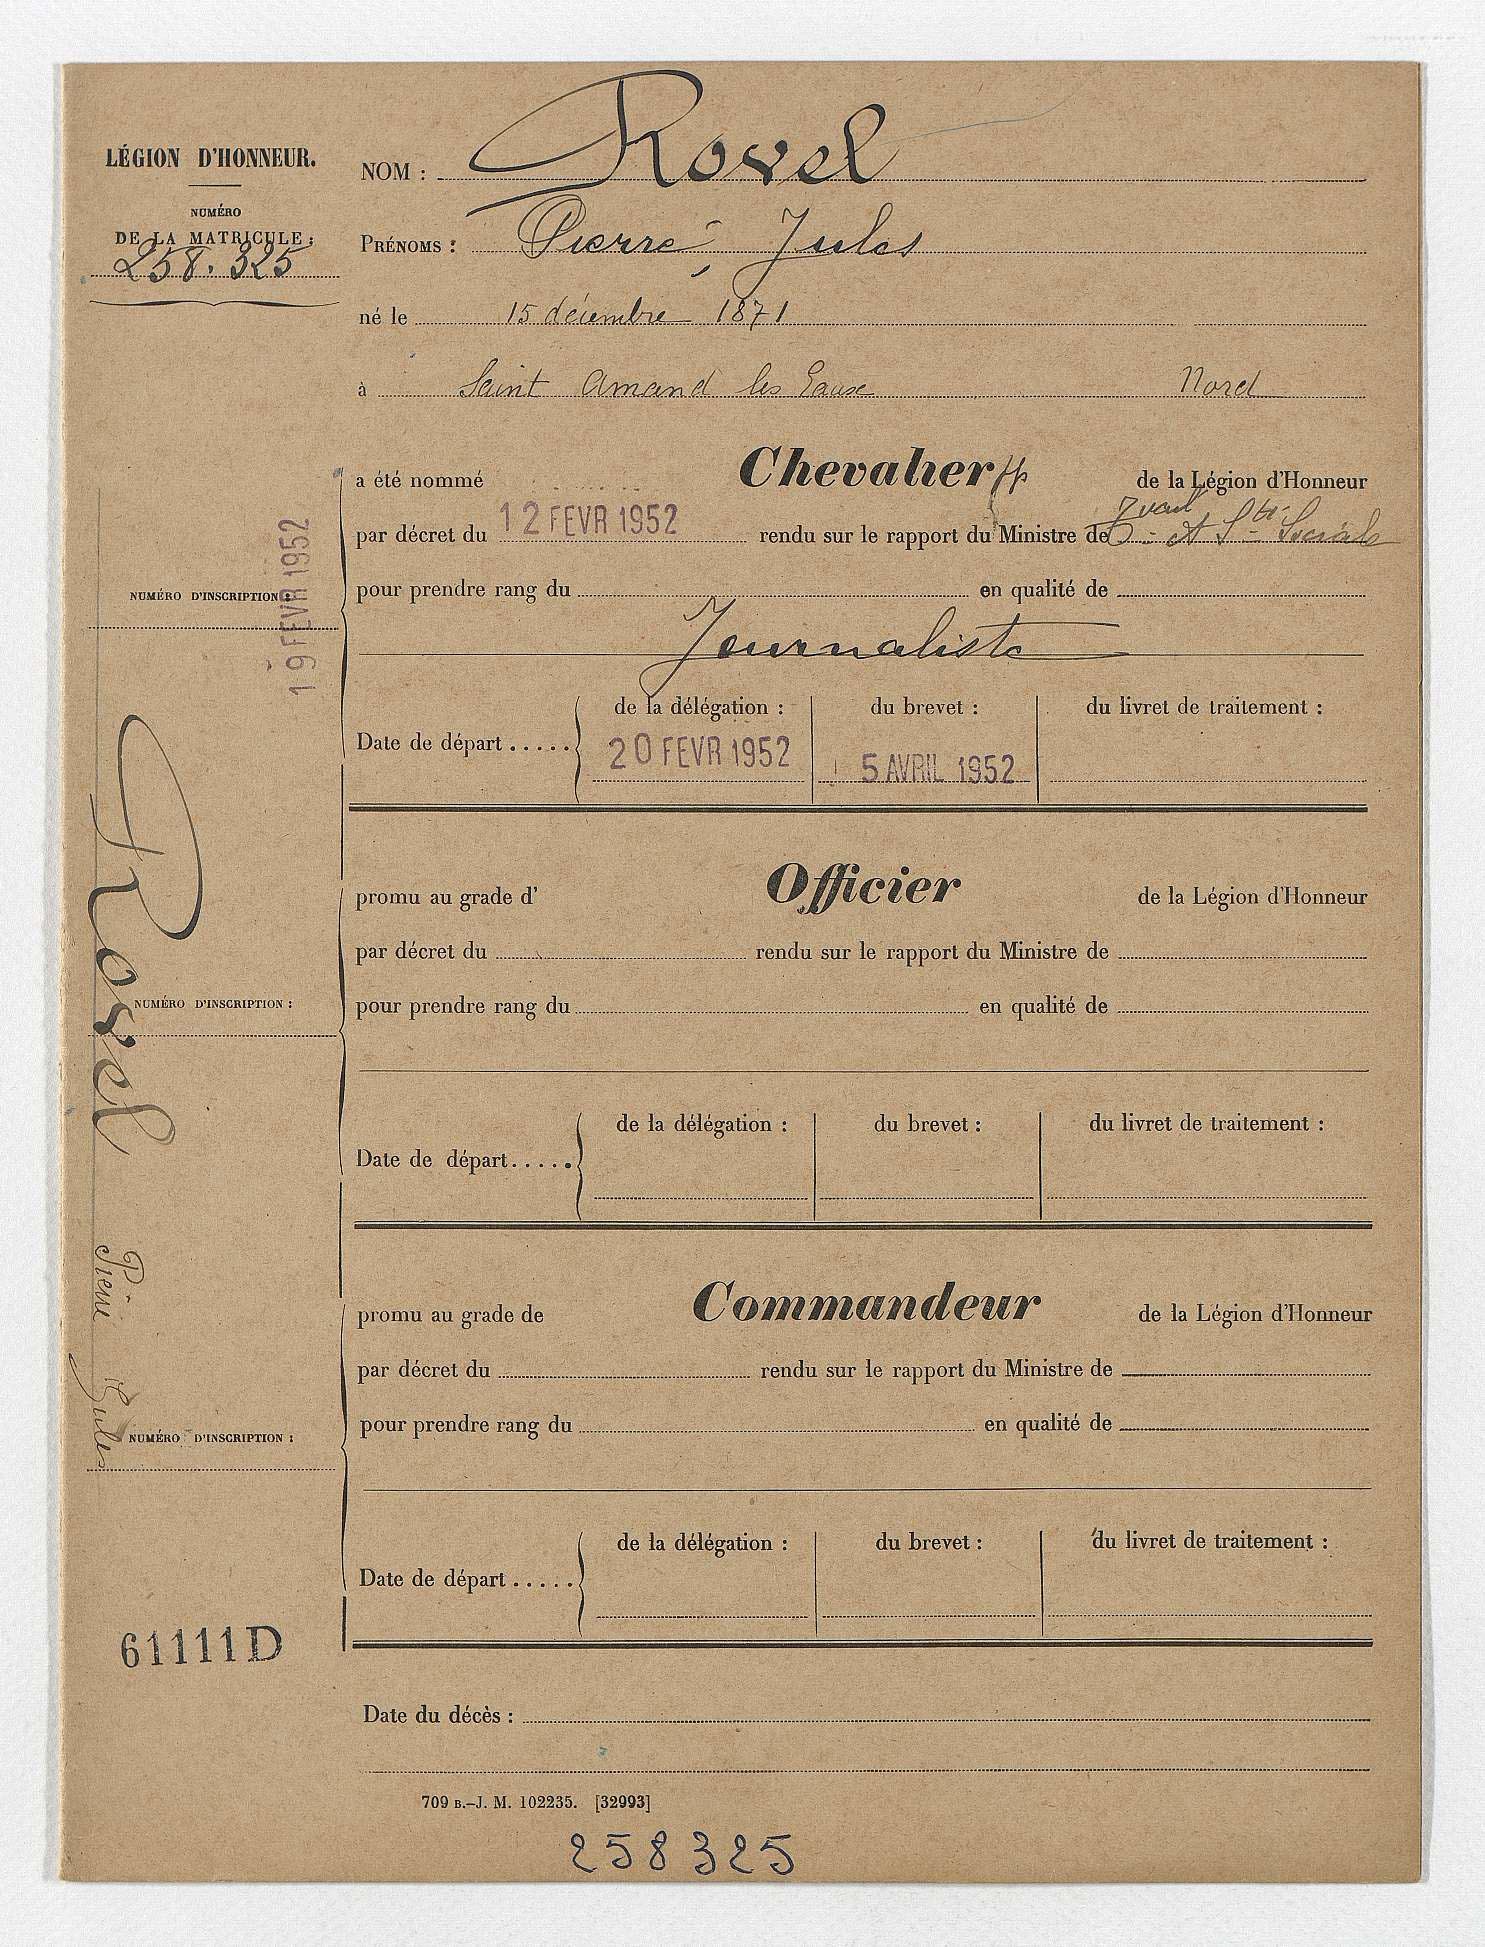 LÉGION D'HONNEUR.
NUMÉRO
DE LA MATRICULE :
258.325
NOM : Rovel
PRÉNOMS : Pierre, Jules
né le 15 décembre 1871
à Saint Amand les Eaux Nord
a été nommé Chevalier de la Légion d'Honneur
par décret du 12 FEVR 1952 rendu sur le rapport du Ministre de Sociale
pour prendre rang du en qualité de
Journaliste
NUMÉRO D'INSCRIPTION :
19 FEVR 1952
de la délégation : du brevet : du livret de traitement :
Date de départ ..... 20 FEVR 1952 5 AVRIL 1952
promu au grade d' Officier de la Légion d'Honneur
par décret du rendu sur le rapport du Ministre de
pour prendre rang du en qualité de
NUMÉRO D'INSCRIPTION :
de la délégation : du brevet : du livret de traitement :
Date de départ.....
promu au grade de Commandeur de la Légion d'Honneur
par décret du rendu sur le rapport du Ministre de
pour prendre rang du en qualité de
NUMÉRO D'INSCRIPTION :
de la délégation : du brevet : du livret de traitement :
Date de départ .....
Rovel Pierre Jules
61111D
Date du décès :
709 B.-J. M. 102235. [32993]
258325